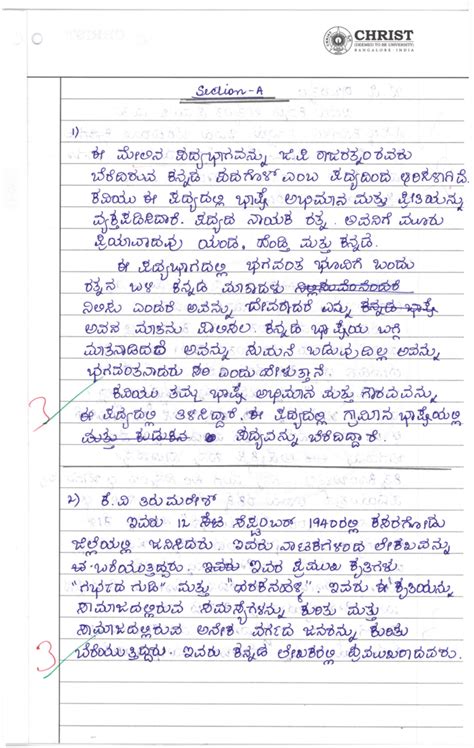 CHRIST
(DEEMED TO BE UNIVERSITY)
BANGALORE · INDIA
Section-A
1)
ಈ ಮೇಲಿನ ಪದ್ಯಭಾಗವನ್ನು ಜಿ.ಪಿ ರಾಜರತ್ನಂರವರು
ಬರೆದಿರುವ ಕನ್ನಡ ಪದಗೋಳ್ ಎಂಬ ಪದ್ಯದಿಂದ
ಕವಿಯು ಈ ಪದ್ಯದಲ್ಲಿ ಭಾಷೆ ಅಭಿಮಾನ ಮತ್ತು ಪ್ರೀತಿಯನ್ನು
ವ್ಯಕ್ತಪಡಿಸಿದ್ದಾರೆ. ಪದ್ಯದ ನಾಯಕ ರತ್ನ. ಅವನಿಗೆ ಮೂರು
ಪ್ರಿಯವಾದವು ಯಂಡ, ಹೆಂಡ್ತಿ ಮತ್ತು ಕನ್ನಡ.
ಈ ಪದ್ಯಭಾಗದಲ್ಲಿ ಭಗವಂತ ಭೂವಿಗೆ ಬಂದು
ರತ್ನನ ಬಳಿ ಕನ್ನಡ ಮಾತಾಡಳು
ನಿಲಿಸು ಎಂದರೆ ಅವನ್ನು ದೇವರಾದರೆ ಎನ್ನು
ಅವನ ಮಾತನು ಕನ್ನಡ ಭಾಷೆಯ ಬಗ್ಗೆ
ಮಾತನಾಡಿದರೆ ಅವನ್ನು ಸುಮನೆ ಬಡುವುದಿಲ್ಲ ಅವನ್ನು
ಭಗವಂತನಾದರು ಸರಿ ಎಂದು ಹೇಳುತ್ತಾನೆ.
ಕವಿಯು ತಮ್ಮ ಭಾಷೆ ಅಭಿಮಾನ ಮತ್ತು ಗೌರವವನ್ನು
ಈ ಪದ್ಯದಲ್ಲಿ ತಿಳಿಸಿದ್ದಾರೆ. ಈ ಪದ್ಯದಲ್ಲಿ ಗ್ರಾಮೀನ ಭಾಷೆಯಲ್ಲಿ
ಪದ್ಯವನ್ನು ಬರೆದಿದ್ದಾರೆ.
3
2) ಕೆ.ವಿ ತಿರುಮಲೇಶ್
ಇವರು 12 ನೇಟ ಸೆಪ್ಟಂಬರ್ 1940ರಲ್ಲಿ ಕಸರಗೋಡು
ಜಿಲ್ಲೆಯಲ್ಲಿ ಜನಿಸಿದರು. ಇವರು ನಾಟಕಗಳಂದ ಲೇಖನವನ್ನು
ಬರೆಯುತ್ತಿದ್ದರು. ಇವರ ಪ್ರಮುಖ ಕೃತಿಗಳು
"ಗರ್ಭದ ಗುಡಿ" ಮತ್ತು ಇವರು ಈ ಕೃತಿಯನ್ನು
ಸಾಮಾಜದಲ್ಲಿರುವ ಸಮಸ್ಯೆಗಳನ್ನು ಕುರಿತು ಮತ್ತು
ಸಾಮಾಜದಲ್ಲಿರುವ ಅನೇಕ ವರ್ಗದ ಜನರನ್ನು ಕುರಿತು
ಬರೆಯುತ್ತಿದ್ದರು. ಇವರು ಕನ್ನಡ ಲೇಖಕರಲ್ಲಿ ಪ್ರಮುಖರಾದವರು.
3